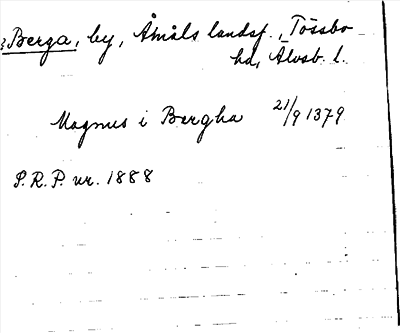 Berga, by, Åmåls landsf., Tössbo
hd, Älvsb. l.
Magnus i Bergha 21/9 1379
P.R.P. nr. 1888